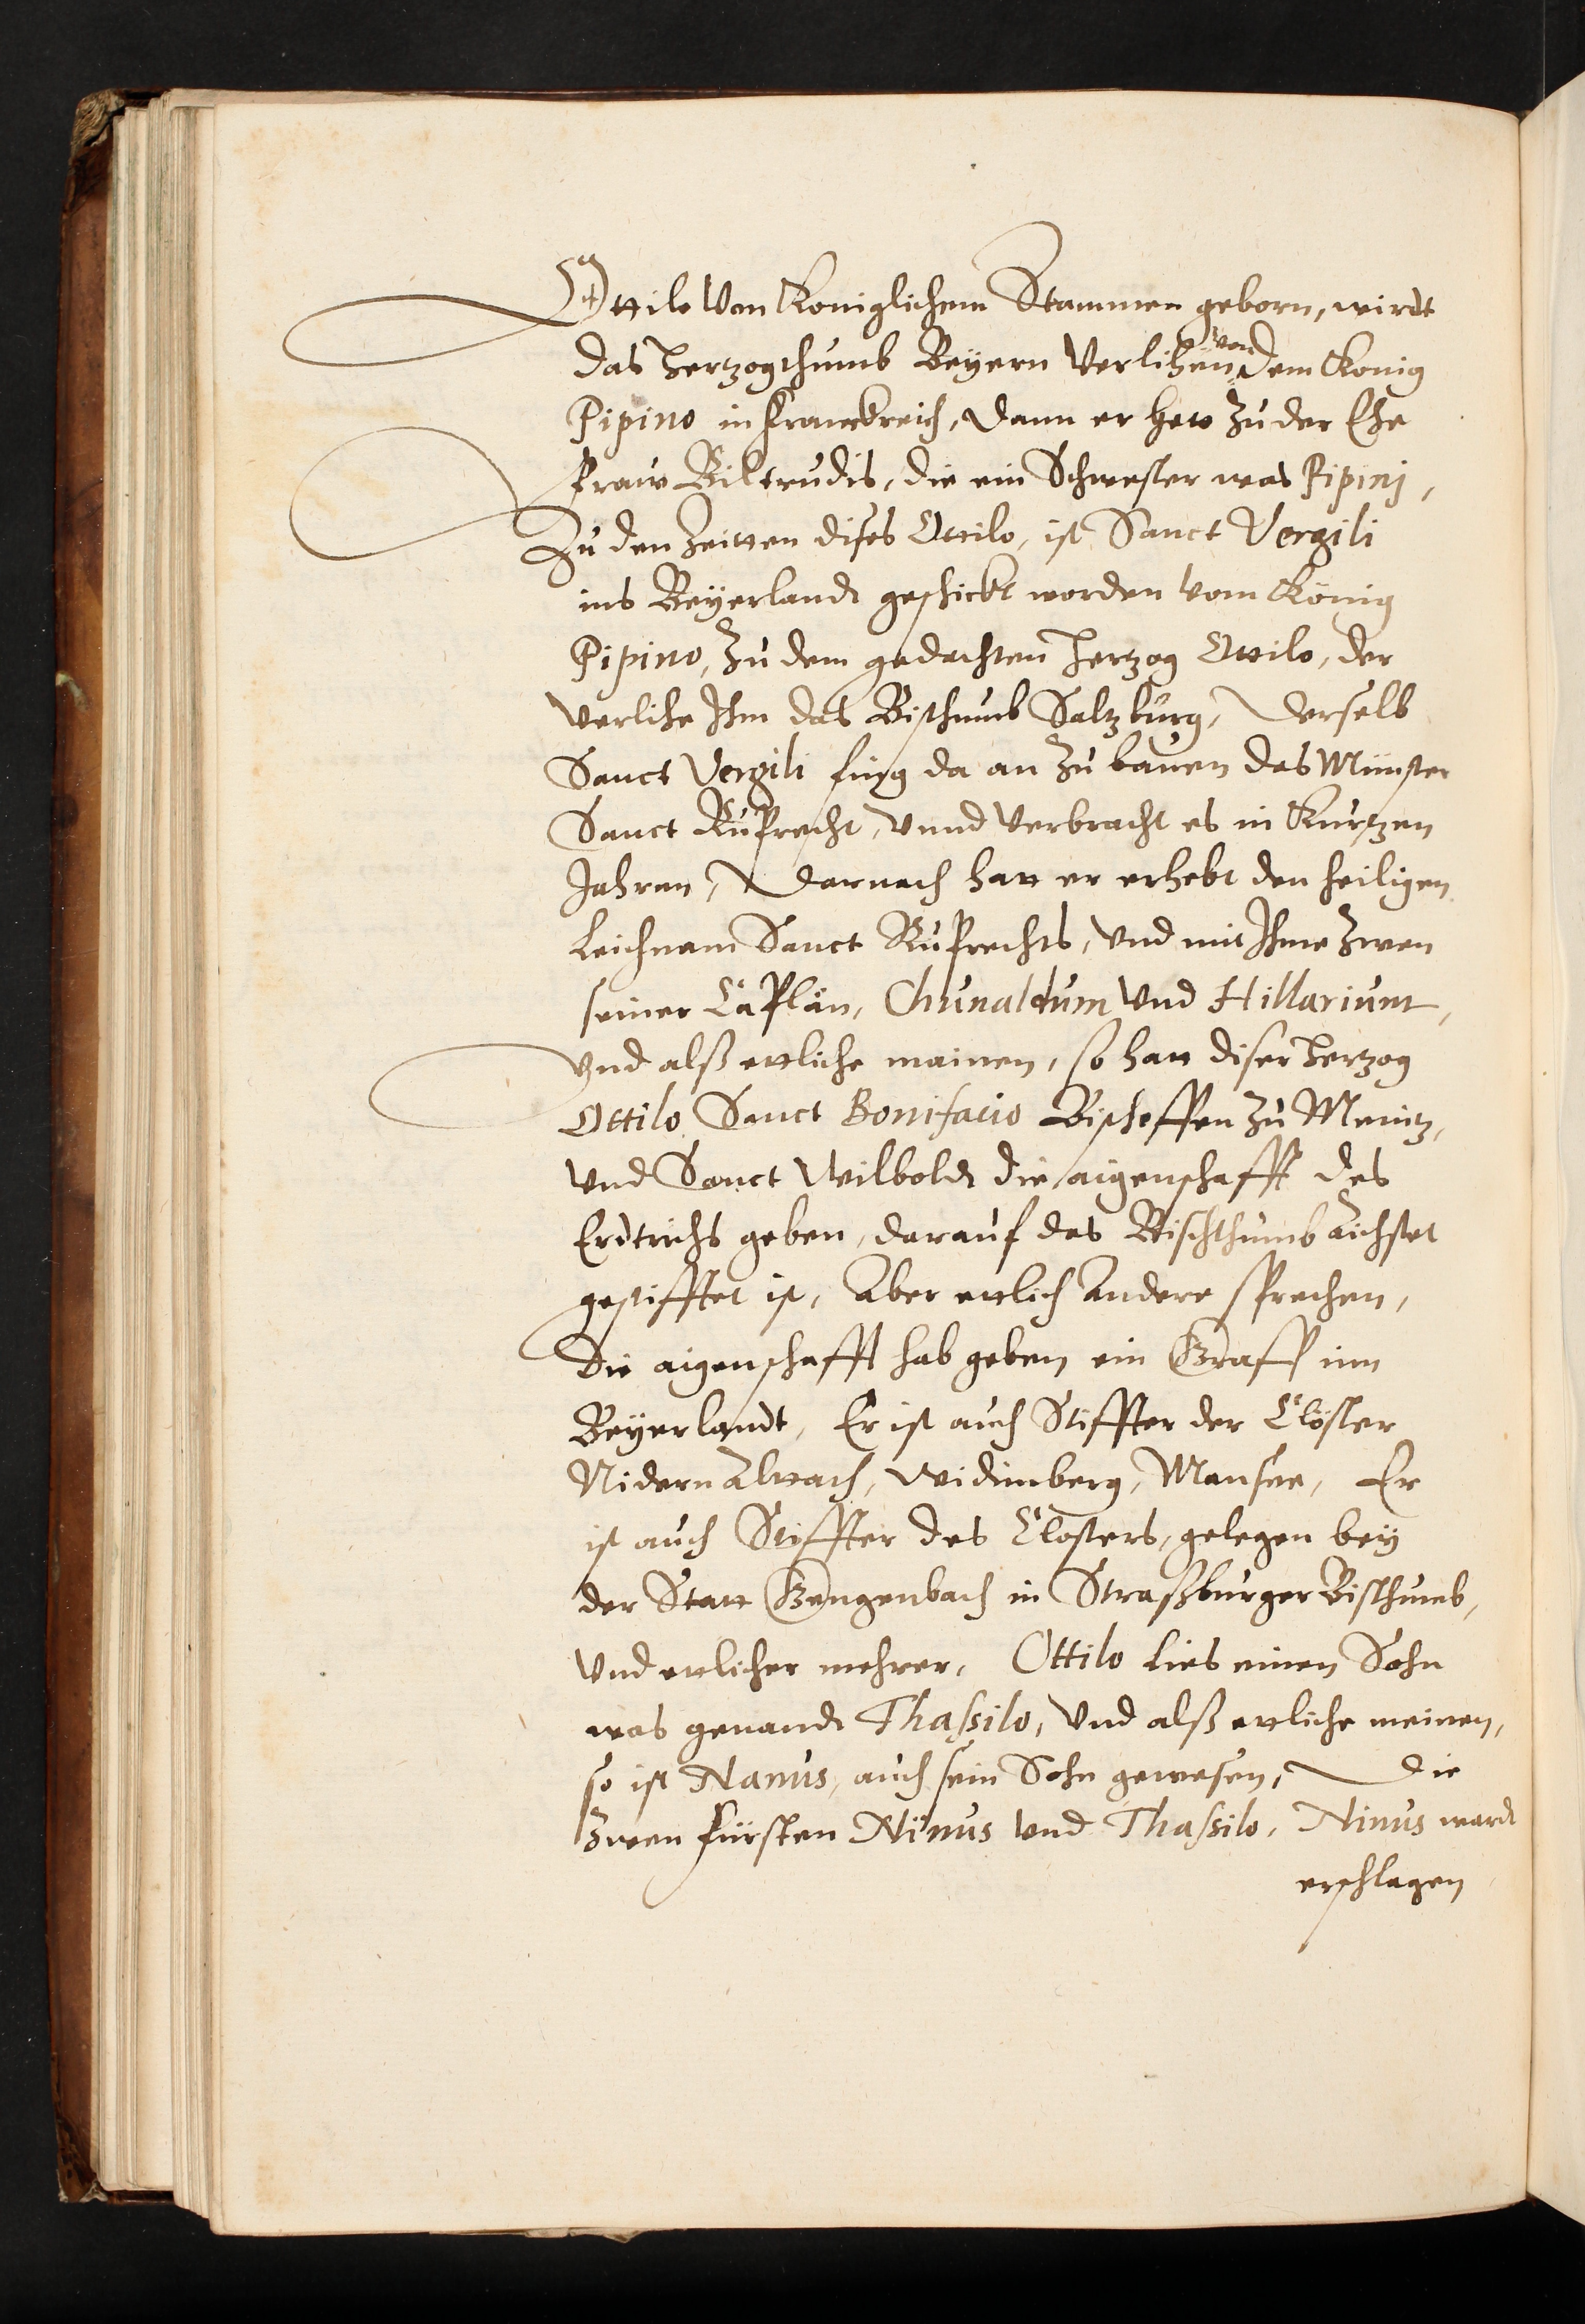 Ottilo Von Koniglichem Stammen geborn, wirdt
das Hertzogthumb Beyern Verlihen von dem Konig
Pipino in Franckreich, Dann er hett zu der Ehe
fraw Biltrudis, die ein Schwester was Pipinj,
Zu den Zeitten dises Ottilo, ist Sanct Vergili
ins Beyerlandt geschickt worden vom König
Pipino, Zu dem gedachten Hertzog Ottilo, der
verlihe Ihm das Bisthumb Saltzburg, Derselb
Sanct Vergili fing da an zu bauen das Münster
Sanct Ruprecht, Vnnd Verbracht es in Kurtzen
Jahren, Darnach hatt er erhebt den heiligen
Leichnam Sanct Ruprechts, Vnd mit Ihme Zwen
seiner Caplän, Chunaldum Vnd Hillarium,
Vnd alß ettliche mainen, so hatt diser Hertzog
Ottilo Sanct Bonifacio Bischoffen zu Meintz,
Vnd Sanct Wilboldt die aigenschafft des
Erdtrichs geben, darauf das Bischthumb Aichstet
gestifftet ist, Aber ettlich Andere sprechen,
Die aigenschafft hab geben ein Graff inn
Beyerlandt, Er ist auch Stiffter der Clöster
Nidern Altach, Widimberg, Mansee, Er
ist auch Stiffter des Closters, gelegen bey
der Statt Gengenbach in Straßburger Bisthumb,
Vnd ettlicher mehrer, Ottilo lies einen Sohn
was genandt Thassilo, Vnd alß ettliche meinen,
so ist Nanus, auch sein Sohn gewesen, Die
Zwen fürsten Ninus Vnd Thassilo, Ninus wardt
erschlagen